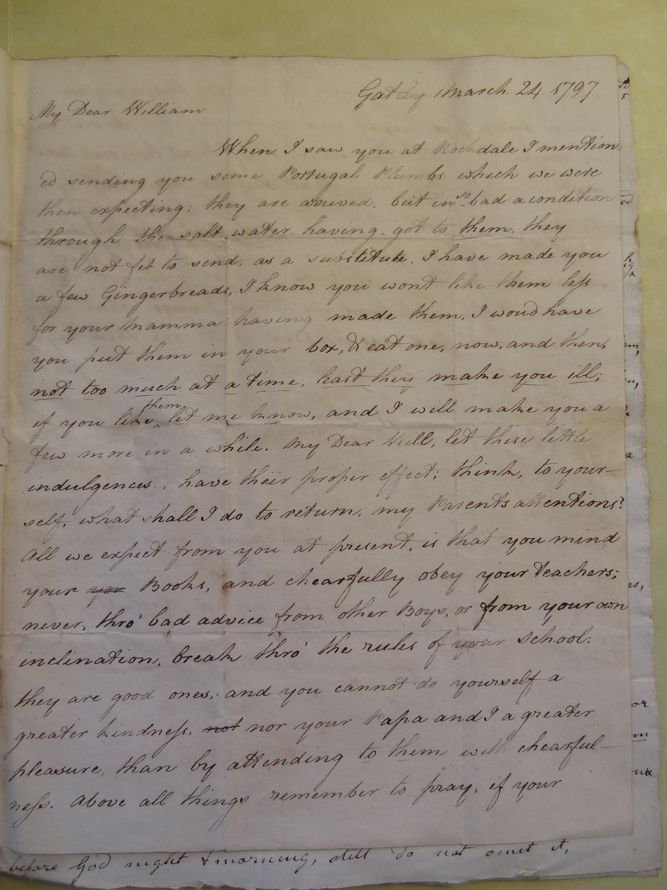 Gatley March 24 1797
My Dear William
When I saw you at Rochdale I mention
ed sending you some Portugal Plumbs which we were
then expecting; they are arrived, but in so bad a condition
through the salt water having got to them, they
are not fit to send; as a substitute, I have made you
a few Gingerbreads, I know you wont like them less
for your Mamma having made them, I woud have
you put them in your box, & eat one, now, and then,
not too much at a time, least they make you ill;
if you like them, let me know, and I will make you a
few more in a while. My Dear Will, let these little
indulgences, have their proper effect; think, to your-
self, what shall I do to return, my Parents attentions?
All we expect from you at present, is that you mind
your you Books, and chearfully obey your Teachers;
never, thro' bad advice from other Boys, or from your own
inclination, break thro' the rules of your School:
they are good ones, and you cannot do yourself a
greater kindness, not nor your Papa and I a greater
pleasure, than by attending to them with chearful-
ness. Above all things remember to pray, if your
before God night & morning, still do not omit it,